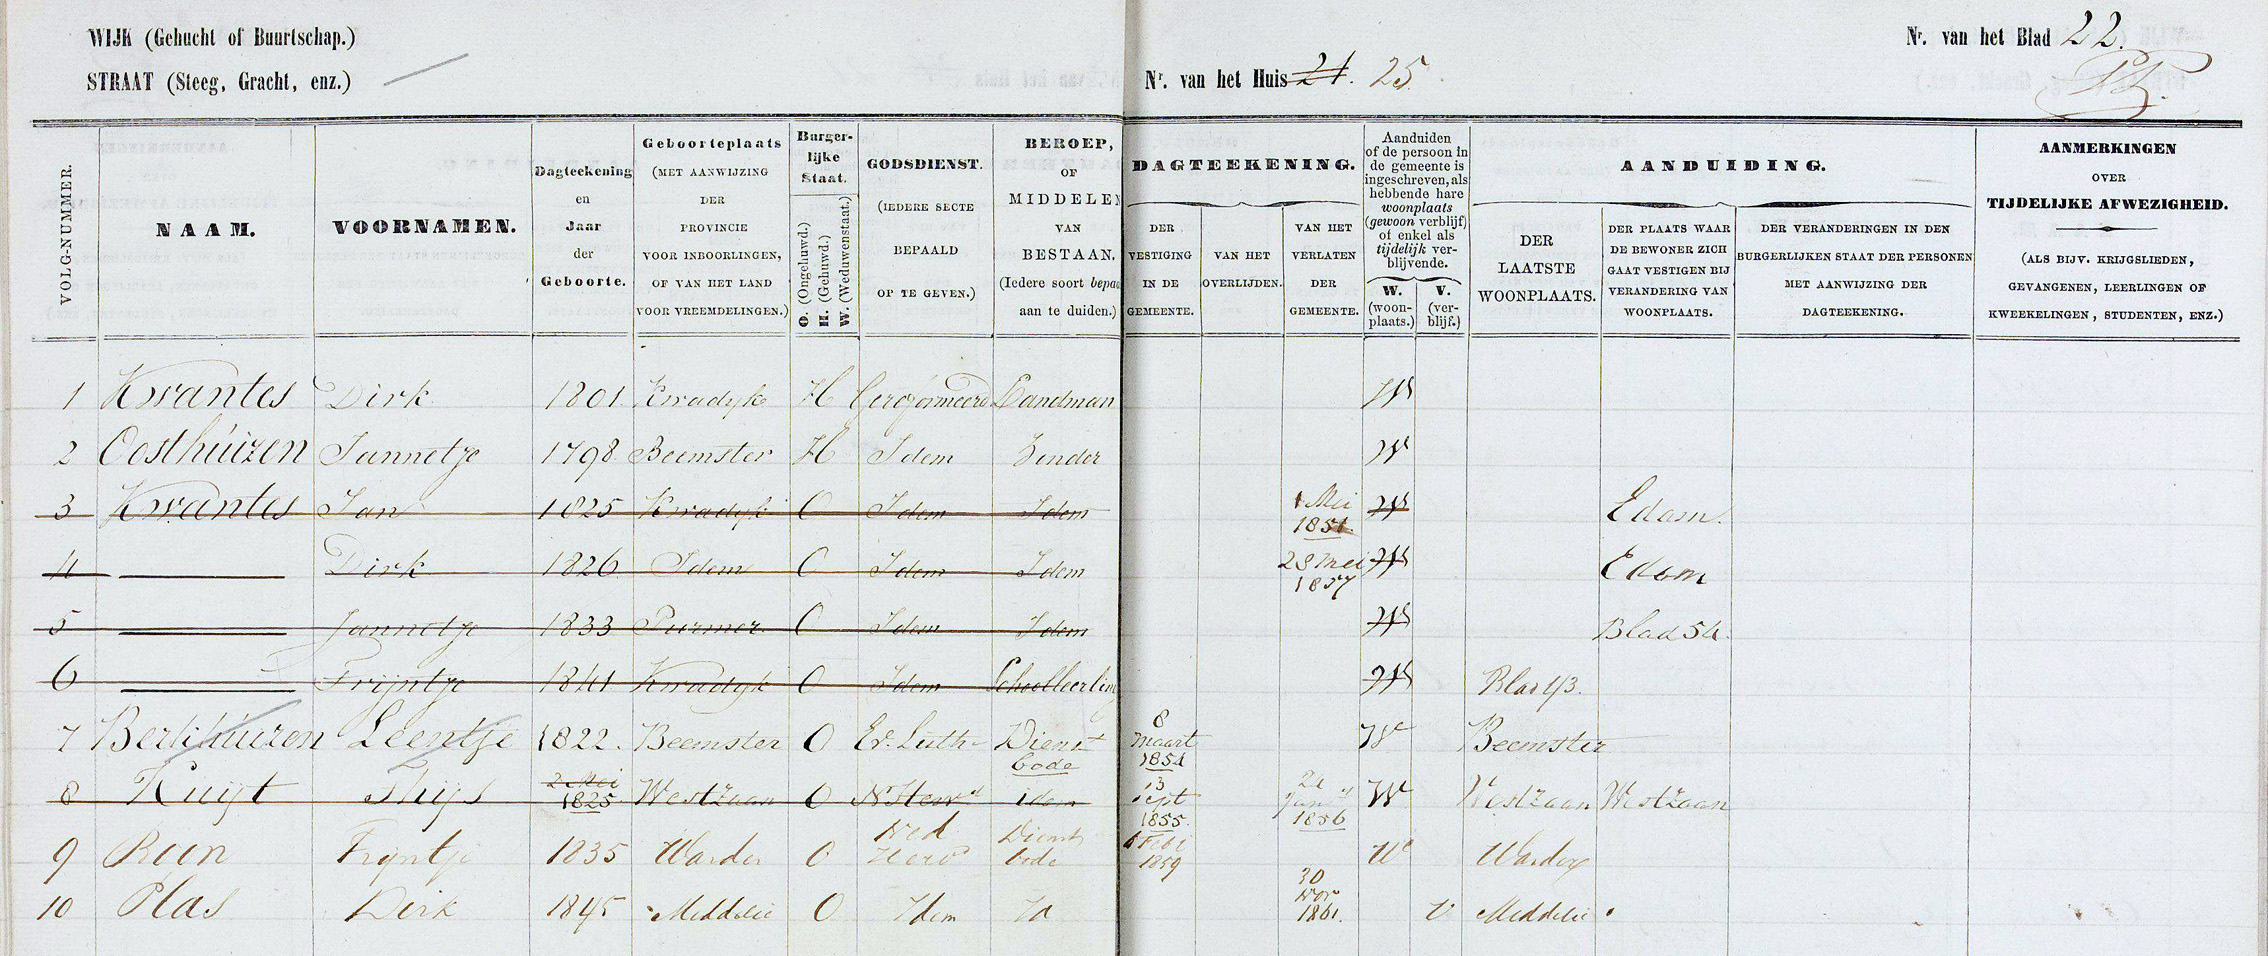 WIJK (Gehucht of Buurtschap.)
STRAAT (Steeg, Gracht, enz.)
Nr. van het Huis 21. 25.
Nr. van het Blad 22.
VOLG-NUMMER.
NAAM.
VOORNAMEN.
Dagteekening
en
Jaar
der
Geboorte.
Geboorteplaats
(MET AANWIJZING
DER
PROVINCIE
VOOR INBOORLINGEN,
OF VAN HET LAND
VOOR VREEMDELINGEN.)
Burger-
lijke
Staat.
O. (Ongehuwd.)
H. (Gehuwd.)
W. (Weduwenstaat.)
GODSDIENST.
(IEDERE SECTE
BEPAALD
OP TE GEVEN.)
BEROEP,
OF
MIDDELEN
VAN
BESTAAN.
(Iedere soort bepaa
aan te duiden.)
DAGTEEKENING.
DER
VESTIGING
IN DE
GEMEENTE.
VAN HET
OVERLIJDEN.
VAN HET
VERLATEN
DER
GEMEENTE.
Aanduiden
of de persoon in
de gemeente is
ingeschreven, als
hebbende hare
woonplaats
(gewoon verblijf)
of enkel als
tijdelijk ver-
blijvende.
W.
(woon-
plaats.)
V.
(ver-
blijf.)
AANDUIDING.
DER
LAATSTE
WOONPLAATS.
DER PLAATS WAAR
DE BEWONER ZICH
GAAT VESTIGEN BIJ
VERANDERING VAN
WOONPLAATS.
DER VERANDERINGEN IN DEN
BURGERLIJKEN STAAT DER PERSONEN
MET AANWIJZING DER
DAGTEEKENING.
AANMERKINGEN
OVER
TIJDELIJKE AFWEZIGHEID.
(ALS BIJV. KRIJGSLIEDEN,
GEVANGENEN, LEERLINGEN OF
KWEEKELINGEN, STUDENTEN, ENZ.)
1 Kwantes Dirk 1801 Kwadyke H Gereformeerd Landman W
2 Oosthuizen Jannetje 1798 Beemster H Idem Zonder W
3 Kwantes Jan 1825 Kwadyk O Idem Idem 1 Mei 1851. W Edam.
4 Dirk 1826 Idem O Idem Idem 28 Mei 1857 W Edam
5 Jannetje 1833 Purmer O Idem Idem W Blad 54.
6 Trijntje 1841 Kwadyk O Idem Schoolleerling W Blad 43.
7 Berkhuizen Leentje 1822. Beemster O Ev. Luth. Dienstbode 8 maart 1854 W Beemster
8 Kuijt Thijs 2 Mei 1825 Westzaan O N Herv^d idem 13 Sept 1855. 1856 W Westzaan Westzaan
9 Reen Trijntje 1835 Warder O Ned Herv^d Dienstbode 1 Feb 1859 W Warder
10 Plas Dirk 1845 Middelie O Idem Id 30 Nov 1861. V Middelie